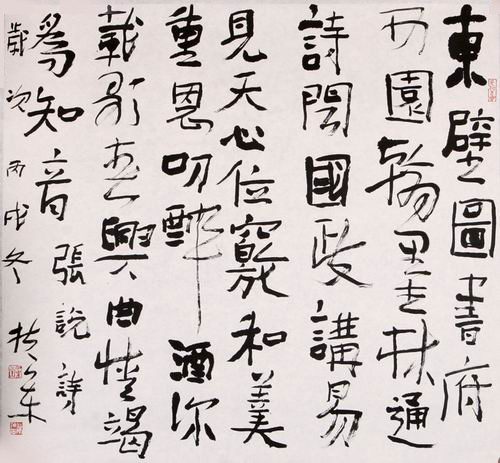 東壁圖書府
西園翰墨林通
詩聞國政講易
見天心位竊和羹
重恩叨醉酒深
載歌春興曲情竭
爲知音張說詩
歲次丙戌冬